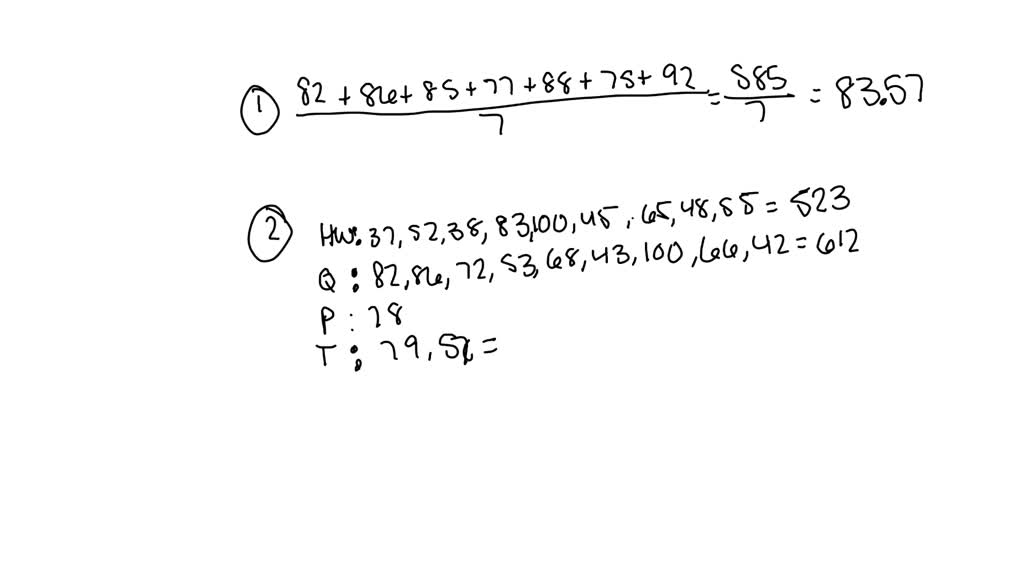 ① 82 + 86 + 85 + 77 + 88 + 75 + 92 / 7 = 585 / 7 = 83.57
② HW: 37, 52, 38, 83, 100, 45, 65, 48, 55 = 523
Q : 82, 86, 72, 53, 68, 43, 100, 66, 42 = 612
P : 78
T : 79, =